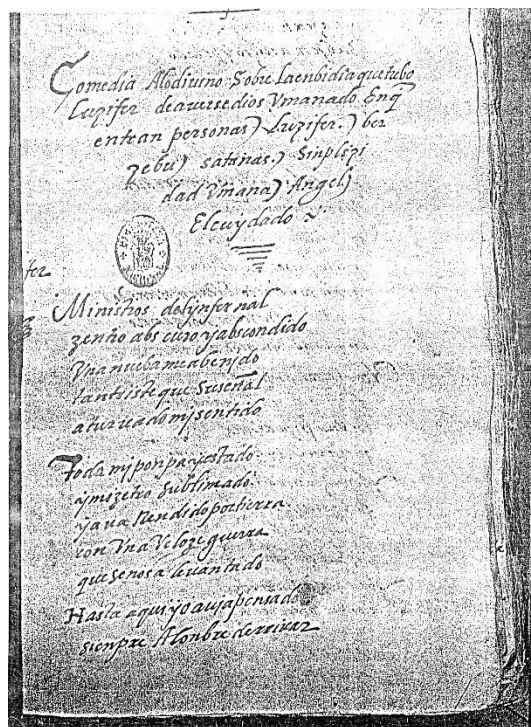 Comedia Alodiuino Sobre Laenbidia quetubo
Luzifer deaverse dios Vmanado Enq
entran personas) Luzifer.) ber
zebu) satanas.) Sinplizi
dad Vmana) Angel)
Elcuydado
Ministros delynfernal
zentro abscuro y abscondido
Vna nueba me a benido
tan triste que su señal
a turuado mj sentido
Toda mj ponpa y estado
y mj zetro sublimado
ya va Rendido por tierra
con Vna Veloze guerra
que se nos a levantado
Hasta aqui yo auja pensado
sienpre Al onbre derribar